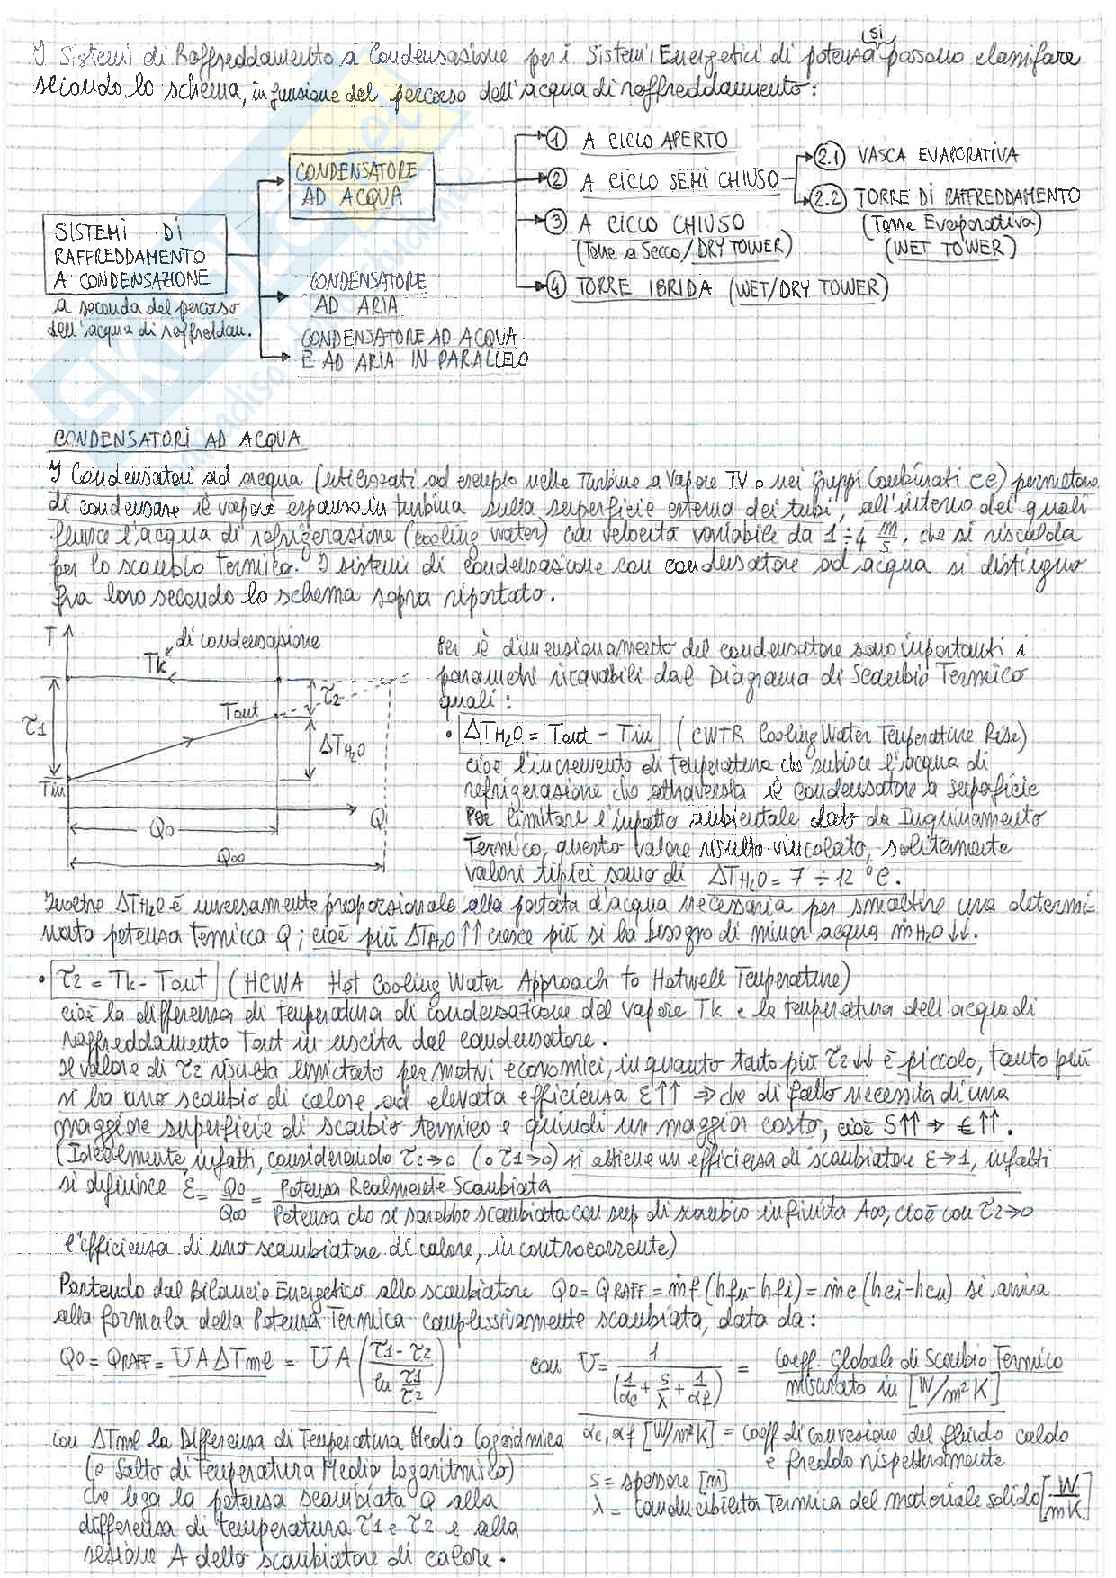 si
I Sistemi di Raffreddamento a Condensazione per i Sistemi Energetici di potenza possono classificare
secondo lo schema, in funzione del percorso dell'acqua di raffreddamento:
SISTEMI DI
RAFFREDDAMENTO
A CONDENSAZIONE
a seconda del percorso
dell'acqua di raffreddam.
CONDENSATORE
AD ACQUA
CONDENSATORE
AD ARIA
CONDENSATORE AD ACQUA
E AD ARIA IN PARALLELO
1 A CICLO APERTO
2 A CICLO SEMI CHIUSO
3 A CICLO CHIUSO
(Torre a Secco/DRY TOWER)
4 TORRE IBRIDA (WET/DRY TOWER)
2.1 VASCA EVAPORATIVA
2.2 TORRE DI RAFFREDDAMENTO
(Torre Evaporativa)
(WET TOWER)
CONDENSATORI AD ACQUA
I Condensatori ad acqua (utilizzati ad esempio nelle Turbine a Vapore TV o nei Gruppi Combinati CC) permettono
di condensare il vapore espanso in turbina sulla superficie esterna dei tubi, all'interno dei quali
fluisce l'acqua di refrigerazione (cooling water) con velocità variabile da 1÷4 m/s, che si riscalda
per lo scambio termico. I sistemi di condensazione con condensatore ad acqua si distinguono
fra loro secondo lo schema sopra riportato.
T
di condensazione
Tk
τ1
Tout
τ2
ΔTH2O
Tin
Q0
Q
Q∞
Per il dimensionamento del condensatore sono importanti i
parametri ricavabili dal Diagramma di Scambio Termico
quali:
• ΔTH2O = Tout - Tin (CWTR Cooling Water Temperature Rise)
cioè l'incremento di temperatura che subisce l'acqua di
refrigerazione che attraversa il condensatore a superficie
Per limitare l'impatto ambientale dato da Inquinamento
Termico, questo valore risulta vincolato, solitamente
valori tipici sono di ΔTH2O = 7 ÷ 12 °C.
Inoltre ΔTH2O è inversamente proporzionale alla portata d'acqua necessaria per smaltire una determi-
nata potenza termica Q; cioè più ΔTH2O ↑↑ cresce più si ha bisogno di minor acqua ṁH2O ↓↓.
• τ2 = Tk - Tout (HCWA Hot Cooling Water Approach to Hotwell Temperature)
cioè la differenza di temperatura di condensazione del vapore Tk e la temperatura dell'acqua di
raffreddamento Tout in uscita dal condensatore.
Il valore di τ2 risulta limitato per motivi economici, in quanto tanto più τ2 ↓↓ è piccolo, tanto più
si ha uno scambio di calore ad elevata efficienza ε↑↑ ⇒ che di fatto necessita di una
maggiore superficie di scambio termico e quindi un maggior costo, cioè S↑↑ ⇒ €↑↑.
(Idealmente, infatti, considerando τ2→0 (o τ1→0) si ottiene un efficienza di scambiatore ε→1, infatti
si definisce ε = Q0/Q∞ = Potenza Realmente Scambiata / Potenza che si sarebbe scambiata con sup di scambio infinita A∞, cioè con τ2→0
l'efficienza di uno scambiatore di calore, in controcorrente)
Partendo dal Bilancio Energetico allo scambiatore Q0 = QRAFF = ṁf (hfu-hfi) = ṁc (hci-hcu) si arriva
alla formula della Potenza Termica complessivamente scambiata, data da:
Q0 = QRAFF = U A ΔTml = U A ( (τ1-τ2) / (ln τ1/τ2) ) con U = 1 / (1/αc + s/λ + 1/αf) = coeff. Globale di Scambio Termico misurato in [W/m²K]
con ΔTml la Differenza di Temperatura Media Logaritmica
(o Salto di Temperatura Media Logaritmico)
che lega la potenza scambiata Q alla
differenza di temperatura τ1 e τ2 e alla
sezione A dello scambiatore di calore.
αc, αf [W/m²K] = coeff di convezione del fluido caldo
e freddo rispettivamente
s = spessore [m]
λ = conducibilità Termica del materiale solido [W/mK]